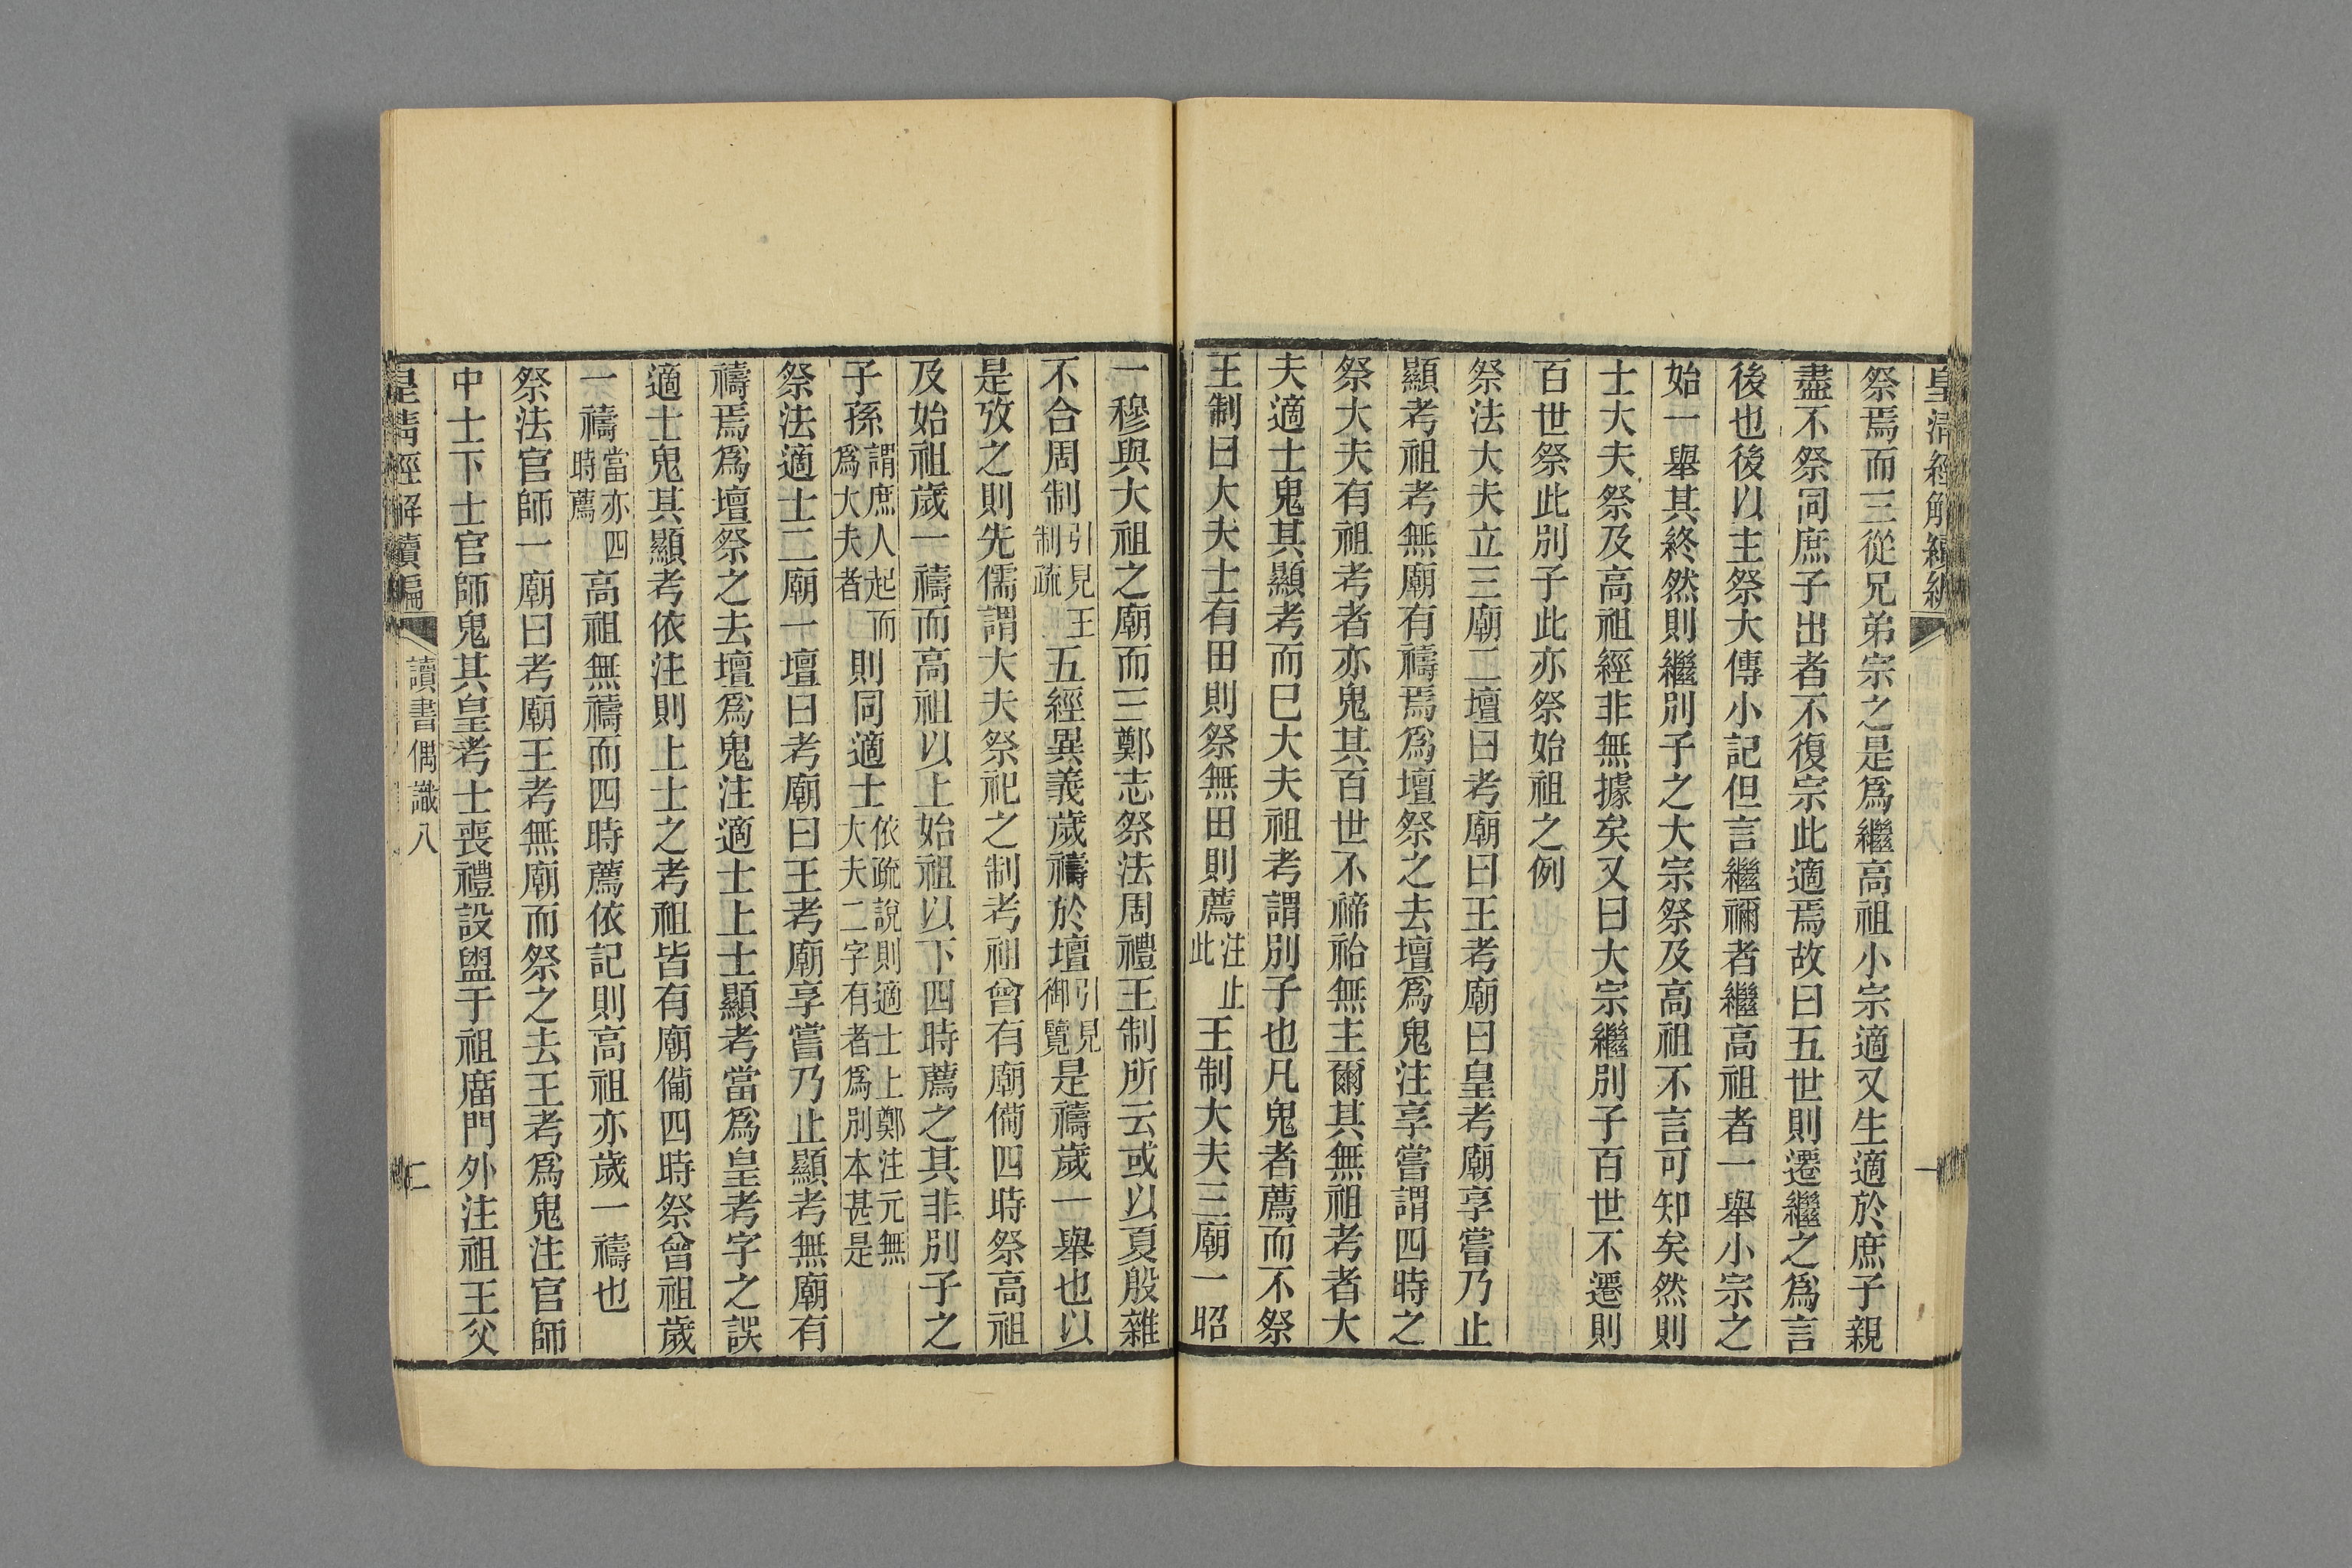 皇清經解續編
一
祭焉而三從兄弟宗之是爲繼高祖小宗適又生適於庶子親
盡不祭同庶子出者不復宗此適焉故曰五世則遷繼之爲言
後也後以主祭大傳小記但言繼禰者繼高祖者一舉小宗之
始一舉其終然則繼別子之大宗祭及高祖不言可知矣然則
士大夫祭及高祖經非無據矣又曰大宗繼別子百世不遷則
百世祭此別子此亦祭始祖之例
祭法大夫立三廟二壇曰考廟曰王考廟曰皇考廟享嘗乃止
顯考祖考無廟有禱焉爲壇祭之去壇爲鬼注享嘗謂四時之
祭大夫有祖考者亦鬼其百世不禘祫無主爾其無祖考者大
夫適士鬼其顯考而已大夫祖考謂別子也凡鬼者薦而不祭
王制曰大夫士有田則祭無田則薦注止此王制大夫三廟一昭
一穆與大祖之廟而三鄭志祭法周禮王制所云或以夏殷雜
不合周制引見王制疏五經異義歲禱於壇引見御覽是禱歲一舉也以
是攷之則先儒謂大夫祭祀之制考祖曾有廟備四時祭高祖
及始祖歲一禱而高祖以上始祖以下四時薦之其非別子之
子孫謂庶人起而爲大夫者則同適士依疏說則適士上鄭注元無大夫二字有者爲別本甚是
祭法適士二廟一壇曰考廟曰王考廟享嘗乃止顯考無廟有
禱焉爲壇祭之去壇爲鬼注適士上士顯考當爲皇考字之誤
適士鬼其顯考依注則上士之考祖皆有廟備四時祭曾祖歲
一禱當亦四時薦高祖無禱而四時薦依記則高祖亦歲一禱也
祭法官師一廟曰考廟王考無廟而祭之去王考爲鬼注官師
中士下士官師鬼其皇考士喪禮設盥于祖廟門外注祖王父
皇清經解續編
讀書偶識八
二